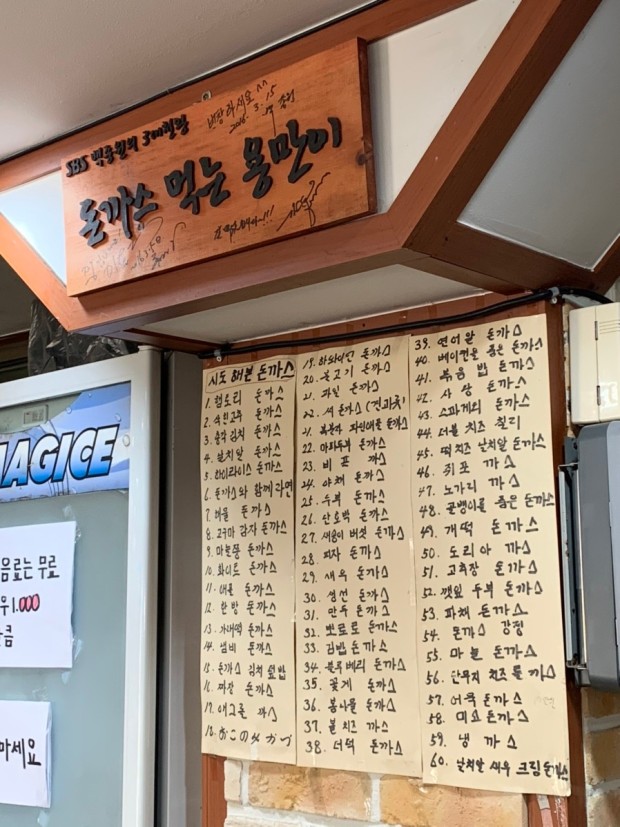 SBS 백종원의 3대천왕
돈까스 먹는 용만이
번창하세요 ^^
2016. 3. 15
AGICE
음료는 무료
1.000
마세요
시도 해본 돈까스
1. 햄도리 돈까스
2. 숙인고추 돈까스
3. 송악김치 돈까스
4. 날치알 돈까스
5. 하이라이스 돈까스
6. 돈까스와 함께라면
7. 메밀 돈까스
8. 고구마 감자 돈까스
9. 마늘쫑 돈까스
10. 화이트 돈까스
11. 매운 돈까스
12. 한방 돈까스
13. 가래떡 돈까스
14. 냄비 돈까스
15. 돈까스 김치 덮밥
16. 짜장 돈까스
17. 애그룬 까스
18. おこのみかつ
19. 하와이안 돈까스
20. 불고기 돈까스
21. 과일 돈까스
-2. 씨돈까스 (견과류)
21. 복분자 파인애플 돈까스
22. 마파두부 돈까스
23. 비프 까스
24. 야채 돈까스
25. 두부 돈까스
26. 단호박 돈까스
27. 새송이 버섯 돈까스
28. 피자 돈까스
29. 새우 돈까스
30. 생선 돈까스
31. 만두 돈까스
32. 뽀로로 돈까스
33. 김밥 돈까스
34. 블루베리 돈까스
35. 꽃게 돈까스
36. 봄나물 돈까스
37. 볼치즈 까스
38. 더덕 돈까스
39. 연어알 돈까스
40. 베이컨을 품은 돈까스
41. 볶음밥 돈까스
42. 사상 돈까스
43. 스파게티 돈까스
44. 더블 치즈 칠리
45. 떡치즈 날치알 돈까스
46. 쥐포 까스
47. 노가리 까스
48. 골뱅이를 품은 돈까스
49. 개떡 돈까스
50. 도리아 까스
51. 고추장 돈까스
52. 깻잎 두부 돈까스
53. 파채 돈까스
54. 돈까스 강정
55. 마늘 돈까스
56. 단무지 치즈롤 까스
57. 어묵 돈까스
58. 미소 돈까스
59. 냉 까스
60. 날치알 새우 크림 돈까스